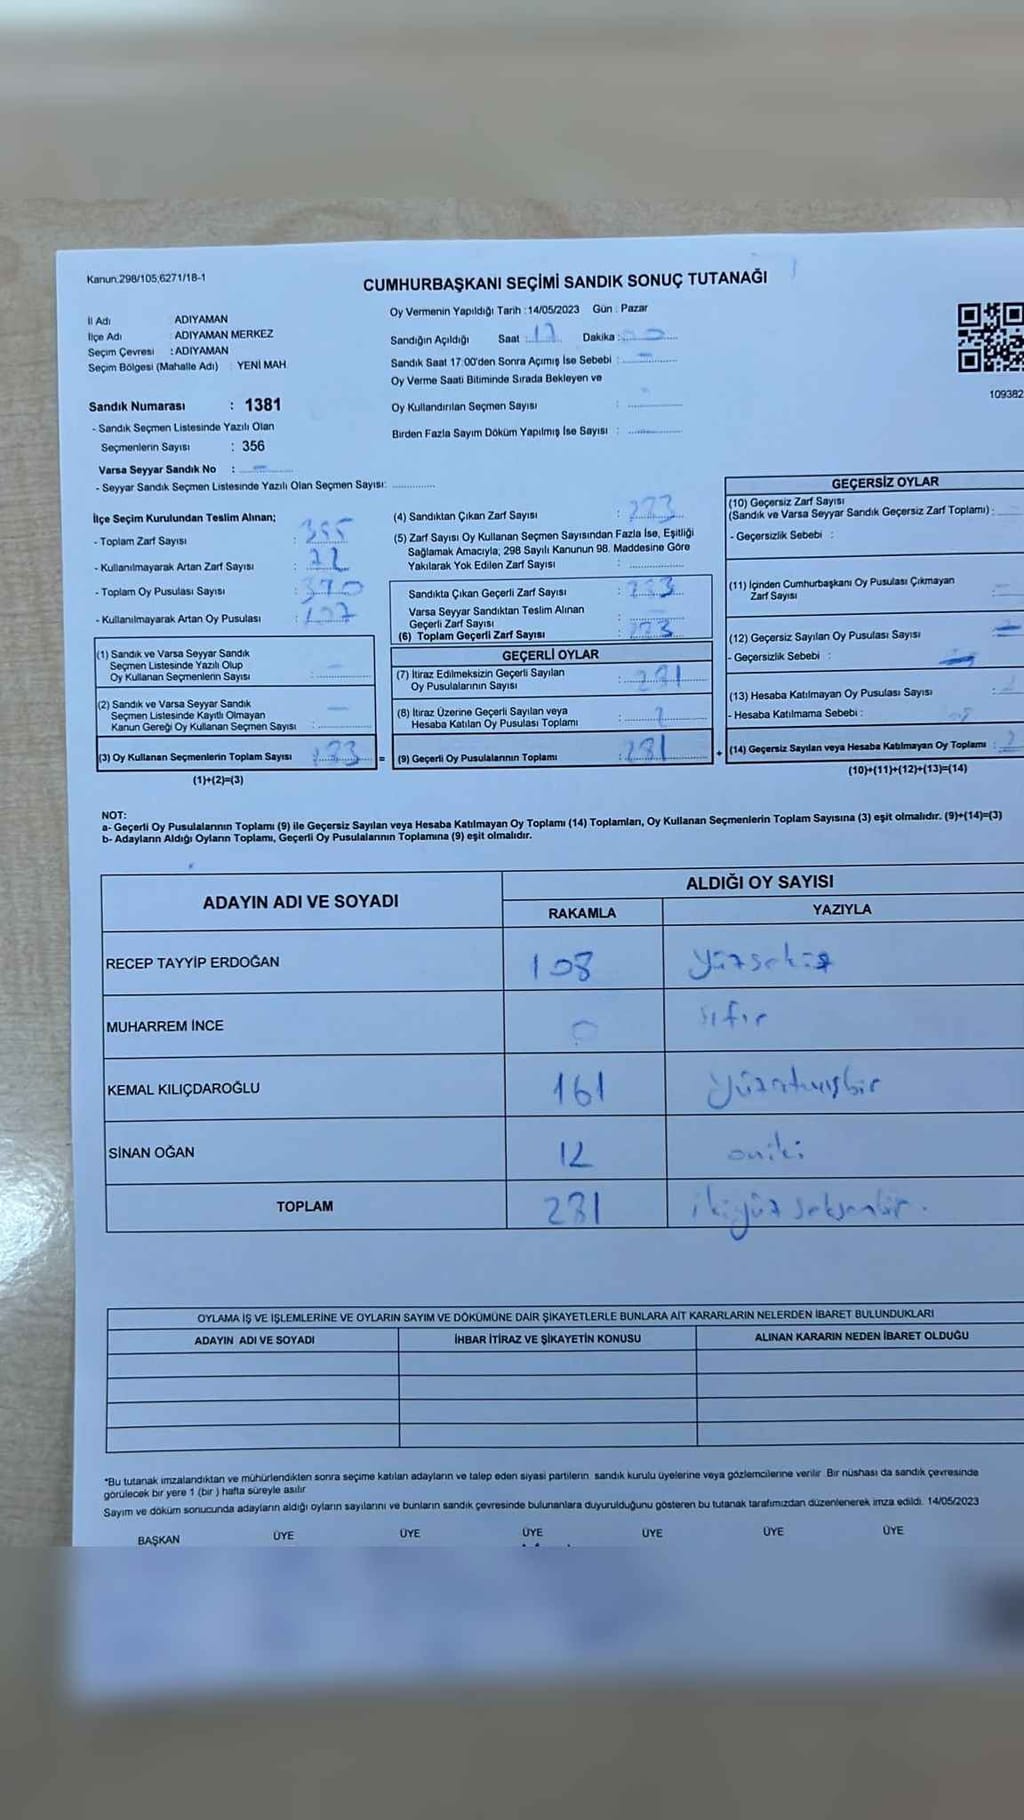 Kanun.298/105;6271/18-1
CUMHURBAŞKANI SEÇİMİ SANDIK SONUÇ TUTANAĞI
Oy Vermenin Yapıldığı Tarih :14/05/2023 Gün : Pazar
İl Adı : ADIYAMAN
İlçe Adı : ADIYAMAN MERKEZ
Seçim Çevresi : ADIYAMAN
Seçim Bölgesi (Mahalle Adı) : YENİ MAH
Sandık Numarası : 1381
- Sandık Seçmen Listesinde Yazılı Olan
Seçmenlerin Sayısı : 356
Varsa Seyyar Sandık No :
- Seyyar Sandık Seçmen Listesinde Yazılı Olan Seçmen Sayısı:
Sandığın Açıldığı Saat : 17 Dakika :
Sandık Saat 17:00'den Sonra Açımış İse Sebebi :
Oy Verme Saati Bitiminde Sırada Bekleyen ve
Oy Kullandırılan Seçmen Sayısı :
Birden Fazla Sayım Döküm Yapılmış İse Sayısı :
109382
İlçe Seçim Kurulundan Teslim Alınan;
- Toplam Zarf Sayısı : 355
- Kullanılmayarak Artan Zarf Sayısı :
- Toplam Oy Pusulası Sayısı : 370
- Kullanılmayarak Artan Oy Pusulası :
(1) Sandık ve Varsa Seyyar Sandık
Seçmen Listesinde Yazılı Olup
Oy Kullanan Seçmenlerin Sayısı :
(2) Sandık ve Varsa Seyyar Sandık
Seçmen Listesinde Kayıtlı Olmayan
Kanun Gereği Oy Kullanan Seçmen Sayısı :
(3) Oy Kullanan Seçmenlerin Toplam Sayısı :
(1)+(2)=(3)
(4) Sandıktan Çıkan Zarf Sayısı :
(5) Zarf Sayısı Oy Kullanan Seçmen Sayısından Fazla İse, Eşitliği
Sağlamak Amacıyla; 298 Sayılı Kanunun 98. Maddesine Göre
Yakılarak Yok Edilen Zarf Sayısı :
Sandıkta Çıkan Geçerli Zarf Sayısı :
Varsa Seyyar Sandıktan Teslim Alınan
Geçerli Zarf Sayısı :
(6) Toplam Geçerli Zarf Sayısı :
GEÇERLİ OYLAR
(7) İtiraz Edilmeksizin Geçerli Sayılan
Oy Pusulalarının Sayısı : 281
(8) İtiraz Üzerine Geçerli Sayılan veya
Hesaba Katılan Oy Pusulası Toplamı :
= (9) Geçerli Oy Pusulalarının Toplamı : 281
GEÇERSİZ OYLAR
(10) Geçersiz Zarf Sayısı
(Sandık ve Varsa Seyyar Sandık Geçersiz Zarf Toplamı) :
- Geçersizlik Sebebi :
(11) İçinden Cumhurbaşkanı Oy Pusulası Çıkmayan
Zarf Sayısı :
(12) Geçersiz Sayılan Oy Pusulası Sayısı :
- Geçersizlik Sebebi :
(13) Hesaba Katılmayan Oy Pusulası Sayısı :
- Hesaba Katılmama Sebebi :
+ (14) Geçersiz Sayılan veya Hesaba Katılmayan Oy Toplamı :
(10)+(11)+(12)+(13)=(14)
NOT:
a- Geçerli Oy Pusulalarının Toplamı (9) ile Geçersiz Sayılan veya Hesaba Katılmayan Oy Toplamı (14) Toplamları, Oy Kullanan Seçmenlerin Toplam Sayısına (3) eşit olmalıdır. (9)+(14)=(3)
b- Adayların Aldığı Oyların Toplamı, Geçerli Oy Pusulalarının Toplamına (9) eşit olmalıdır.
ADAYIN ADI VE SOYADI
ALDIĞI OY SAYISI
RAKAMLA YAZIYLA
RECEP TAYYİP ERDOĞAN 108 yüzsekiz
MUHARREM İNCE 0 sıfır
KEMAL KILIÇDAROĞLU 161 yüzatmışbir
SİNAN OĞAN 12 oniki
TOPLAM 281 ikiyüz seksenbir.
OYLAMA İŞ VE İŞLEMLERİNE VE OYLARIN SAYIM VE DÖKÜMÜNE DAİR ŞİKAYETLERLE BUNLARA AİT KARARLARIN NELERDEN İBARET BULUNDUKLARI
ADAYIN ADI VE SOYADI İHBAR İTİRAZ VE ŞİKAYETİN KONUSU ALINAN KARARIN NEDEN İBARET OLDUĞU
*Bu tutanak imzalandıktan ve mühürlendikten sonra seçime katılan adayların ve talep eden siyasi partilerin sandık kurulu üyelerine veya gözlemcilerine verilir. Bir nüshası da sandık çevresinde
görülecek bir yere 1 (bir ) hafta süreyle asılır
Sayım ve döküm sonucunda adayların aldığı oyların sayılarını ve bunların sandık çevresinde bulunanlara duyurulduğunu gösteren bu tutanak tarafımızdan düzenlenerek imza edildi. 14/05/2023
BAŞKAN ÜYE ÜYE ÜYE ÜYE ÜYE ÜYE